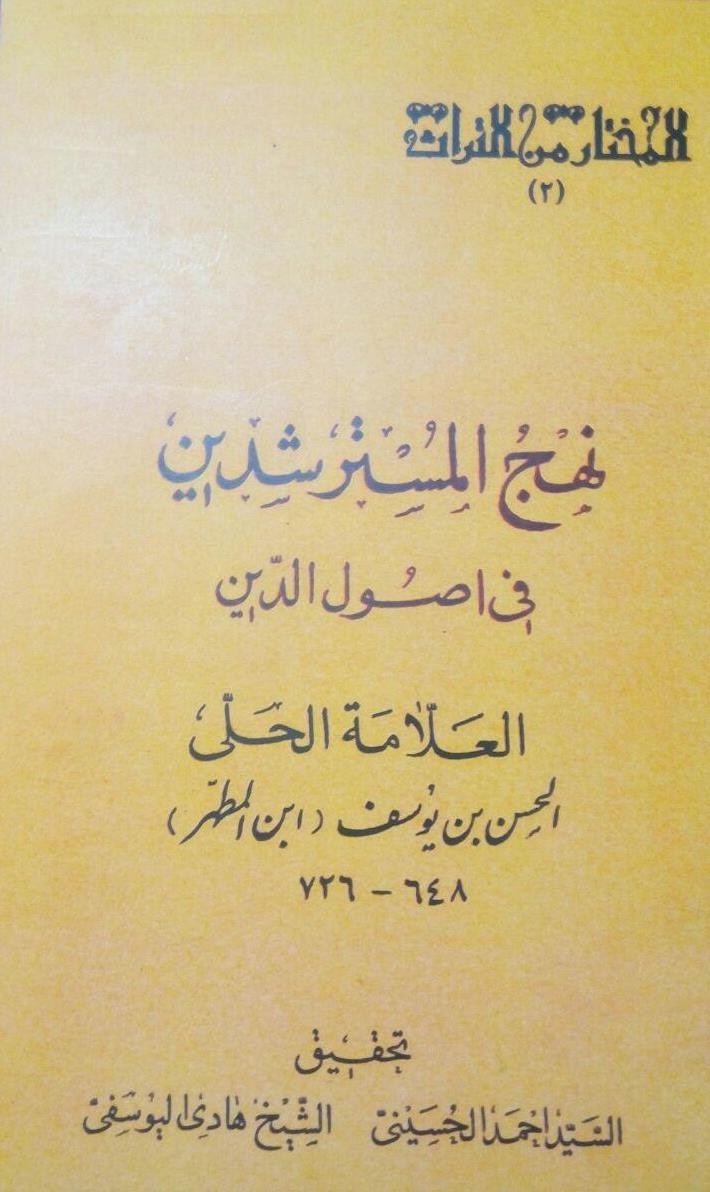 المختار من التراث
(٢)
نَهْجُ المُسْتَرشِدين
في اصُول الدّين
العَلّامَة الحَلّى
الحسن بن يوُسف (ابن المطهّر)
٦٤٨ - ٧٢٦
تحقيق
السَيّد احْمَد الحُسَيْنىّ الشّيْخ هَادى اليوُسُفىّ